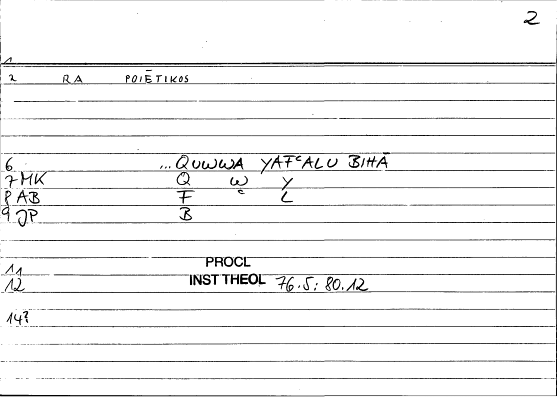 2
1
2 RA POIĒTIKOS
6 ...QUWWA YAFʿALU BIHĀ
7 MK Q W Y
8 AB F ʿ L
9 JP B
11 PROCL
12 INST THEOL 76.5; 80.12
14?